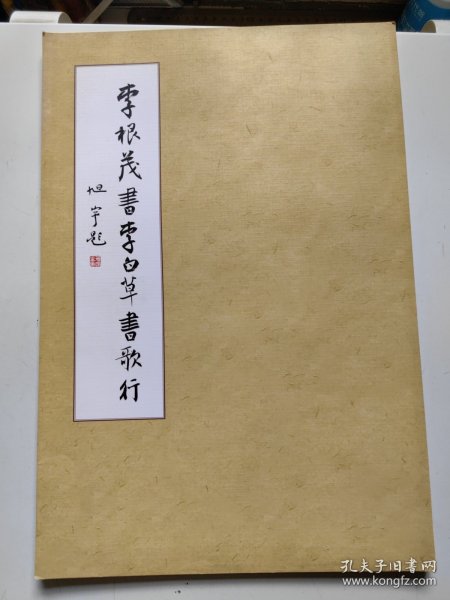 李根茂书李白草書歌行
旭宇题
孔夫子旧书网
www.kongfz.com